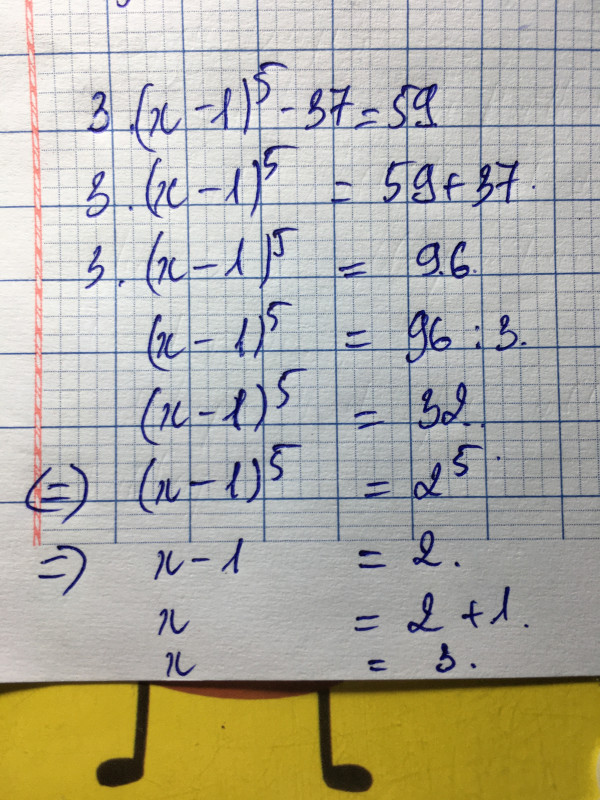 3.(x-1)⁵-37=59
3.(x-1)⁵ = 59+37.
3.(x-1)⁵ = 96.
(x-1)⁵ = 96:3.
(x-1)⁵ = 32.
(=) (x-1)⁵ = 2⁵.
=) x-1 = 2.
x = 2+1.
x = 3.